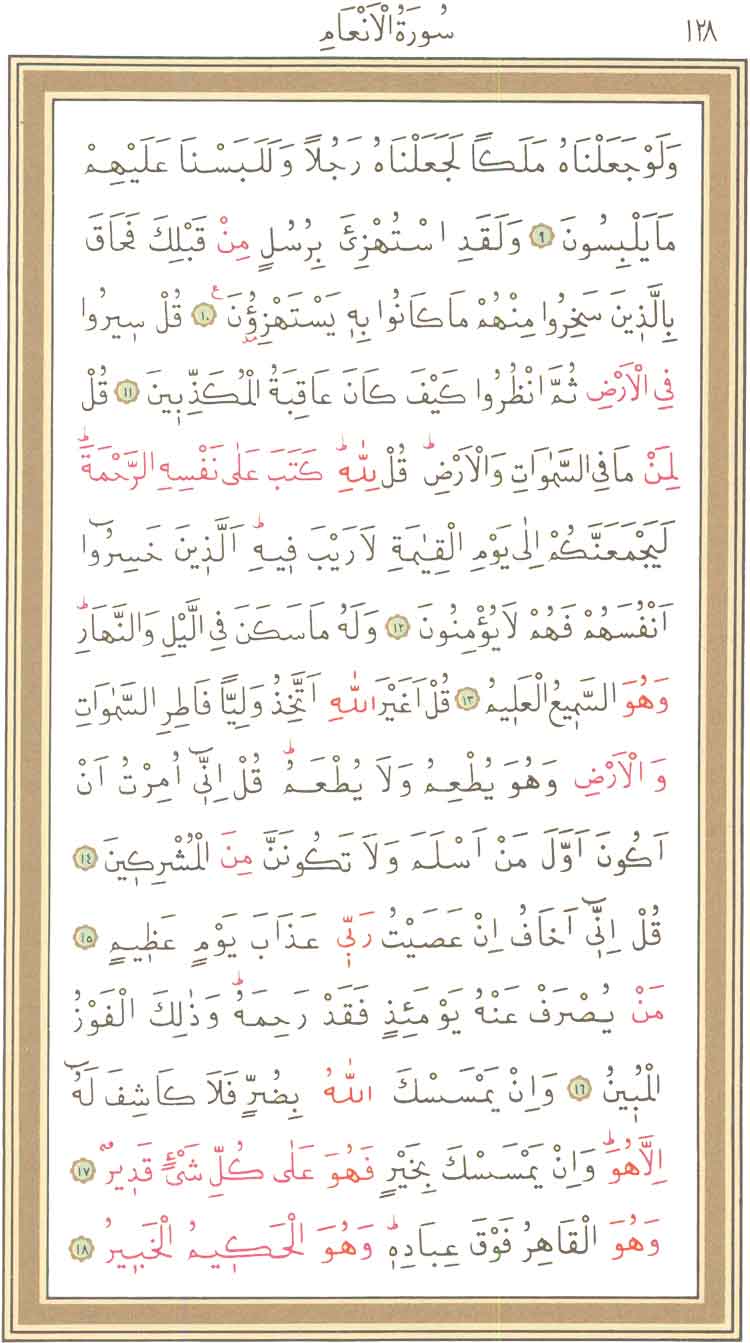 ١٢٨ سُورَةُ الْاَنْعَامِ
وَلَوْ جَعَلْنَاهُ مَلَكًا لَجَعَلْنَاهُ رَجُلًا وَلَلَبَسْنَا عَلَيْهِمْ
مَا يَلْبِسُونَ ﴿٩﴾ وَلَقَدِ اسْتُهْزِئَ بِرُسُلٍ مِنْ قَبْلِكَ فَحَاقَ
بِالَّذ۪ينَ سَخِرُوا مِنْهُمْ مَا كَانُوا بِه۪ يَسْتَهْزِؤُ۫نَ ﴿١٠﴾ ع قُلْ س۪يرُوا
فِي الْاَرْضِ ثُمَّ انْظُرُوا كَيْفَ كَانَ عَاقِبَةُ الْمُكَذِّب۪ينَ ﴿١١﴾ قُلْ
لِمَنْ مَا فِي السَّمٰوَاتِ وَالْاَرْضِۜ قُلْ لِلّٰهِۜ كَتَبَ عَلٰى نَفْسِهِ الرَّحْمَةَۜ
لَيَجْمَعَنَّكُمْ اِلٰى يَوْمِ الْقِيٰمَةِ لَا رَيْبَ ف۪يهِۜ اَلَّذ۪ينَ خَسِرُٓوا
اَنْفُسَهُمْ فَهُمْ لَا يُؤْمِنُونَ ﴿١٢﴾ وَلَهُ مَا سَكَنَ فِي الَّيْلِ وَالنَّهَارِۜ
وَهُوَ السَّم۪يعُ الْعَل۪يمُ ﴿١٣﴾ قُلْ اَغَيْرَ اللّٰهِ اَتَّخِذُ وَلِيًّا فَاطِرِ السَّمٰوَاتِ
وَالْاَرْضِ وَهُوَ يُطْعِمُ وَلَا يُطْعَمُۜ قُلْ اِنّ۪ٓي اُمِرْتُ اَنْ
اَكُونَ اَوَّلَ مَنْ اَسْلَمَ وَلَا تَكُونَنَّ مِنَ الْمُشْرِك۪ينَ ﴿١٤﴾
قُلْ اِنّ۪ٓي اَخَافُ اِنْ عَصَيْتُ رَبّ۪ي عَذَابَ يَوْمٍ عَظ۪يمٍ ﴿١٥﴾
مَنْ يُصْرَفْ عَنْهُ يَوْمَئِذٍ فَقَدْ رَحِمَهُۜ وَذٰلِكَ الْفَوْزُ
الْمُب۪ينُ ﴿١٦﴾ وَاِنْ يَمْسَسْكَ اللّٰهُ بِضُرٍّ فَلَا كَاشِفَ لَهُٓ
اِلَّا هُوَۜ وَاِنْ يَمْسَسْكَ بِخَيْرٍ فَهُوَ عَلٰى كُلِّ شَيْءٍ قَد۪يرٌ ﴿١٧﴾
وَهُوَ الْقَاهِرُ فَوْقَ عِبَادِه۪ۜ وَهُوَ الْحَك۪يمُ الْخَب۪يرُ ﴿١٨﴾